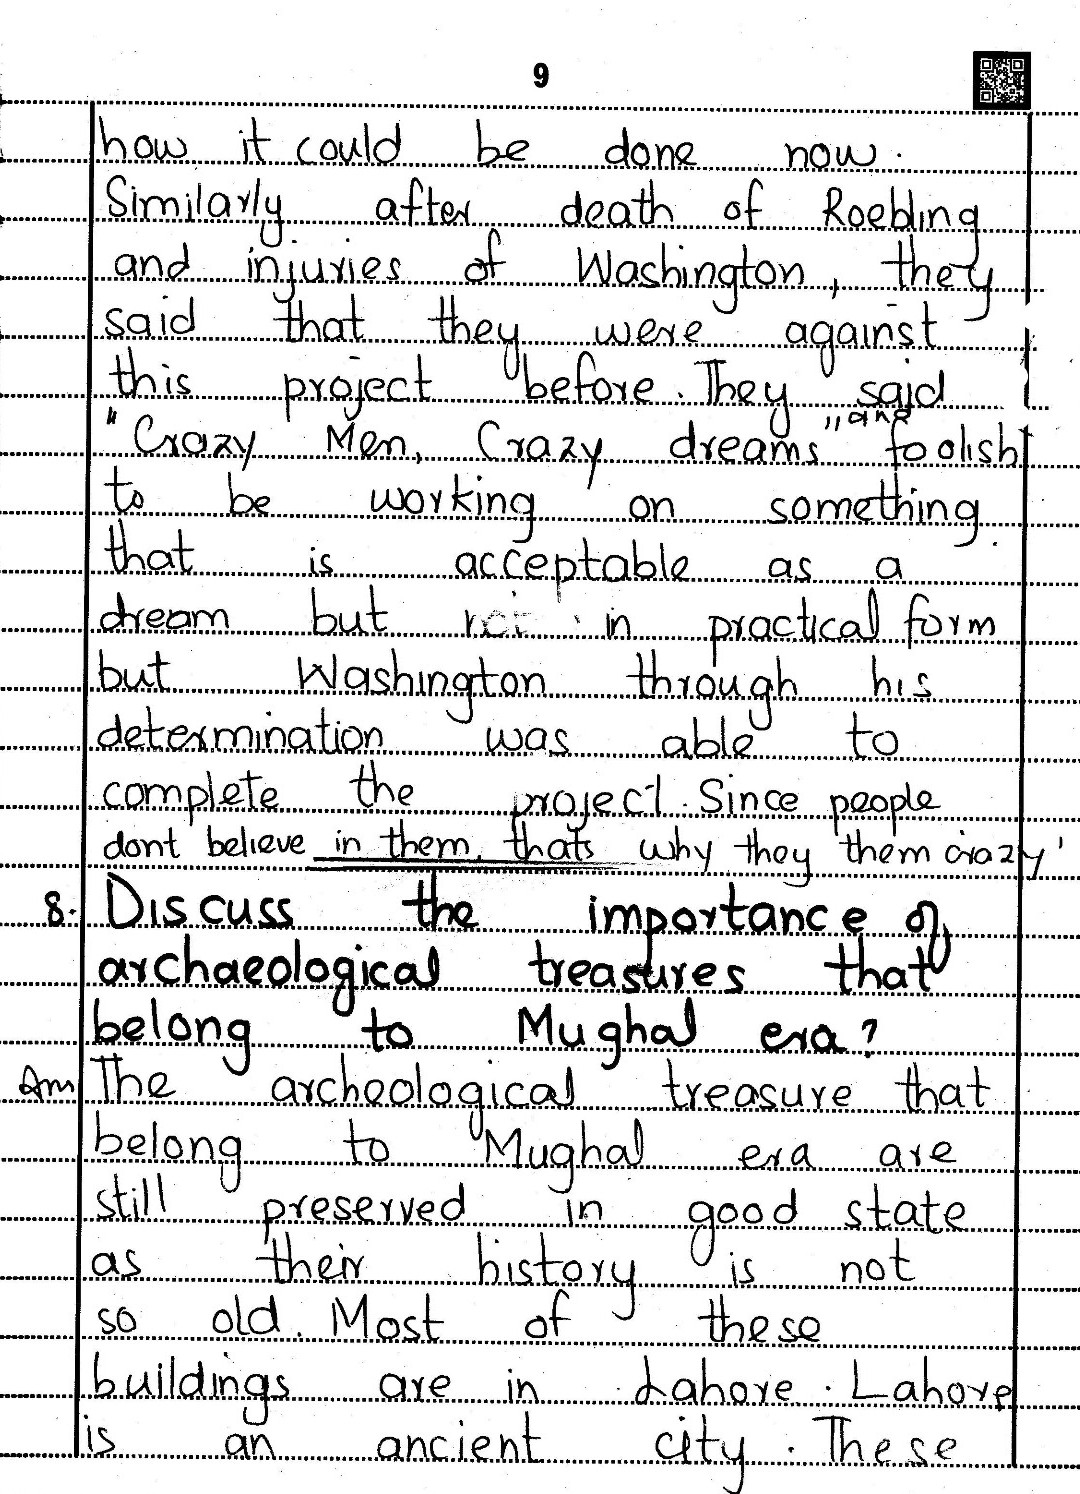 9
how it could be done now.
Similarly after death of Roebling
and injuries of Washington, they
said that they were against
this project before. They said
"Crazy Men, Crazy dreams" and foolish
to be working on something
that is acceptable as a
dream but in practical form
but Washington through his
determination was able to
complete the project. Since people
dont believe in them, thats why they them crazy'
8. Discuss the importance of
archaeological treasures that
belong to Mughal era?
Ans The archeological treasure that
belong to Mughal era are
still preserved in good state
as their history is not
so old. Most of these
buildings are in Lahore. Lahore
is an ancient city. These